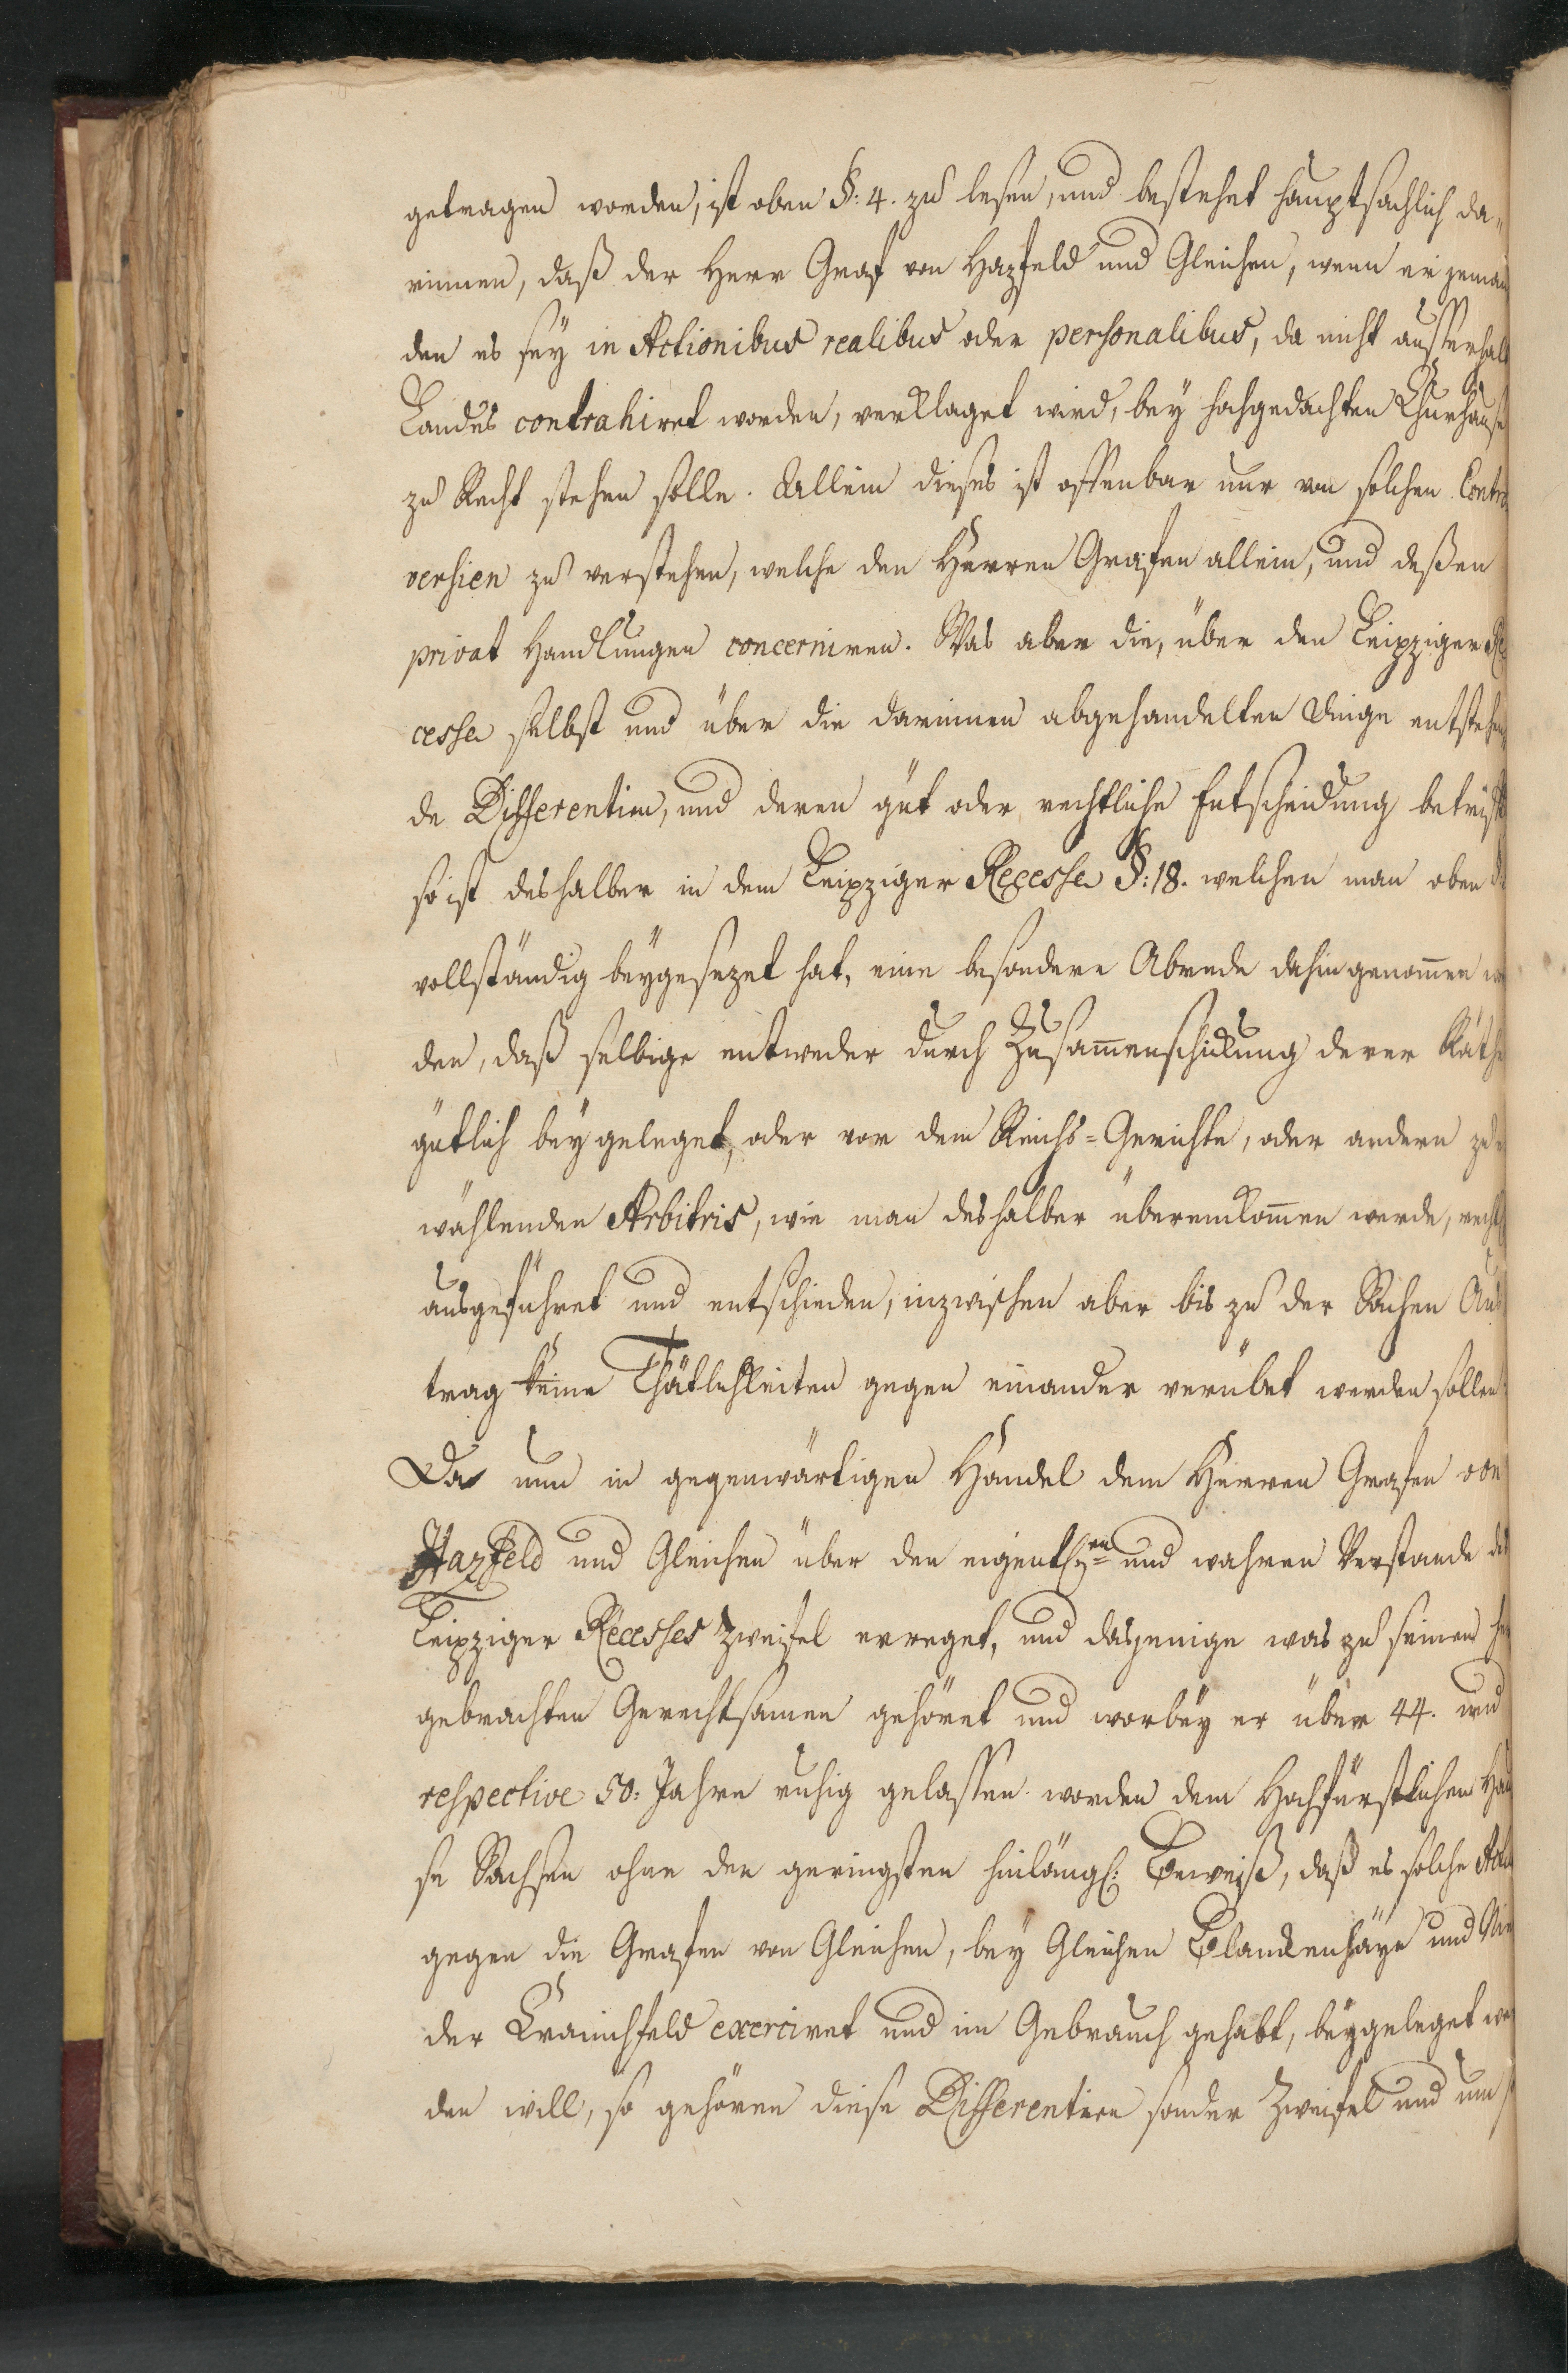 getragen worden, ist oben §: 4. zu lesen, und bestehet hauptsächlich da-
rinnen, daß der Herr Graf von Hazfeld und Gleichen, wenn er jeman
den es sey in Actionibus realibus oder personalibus, da nicht ausserhalb
Landes contrahiret worden, verklaget wird, bey hochgedachten Churhause
zu Recht stehen solle. Allein dieses ist offenbar nur von solchen Contro
versien zu verstehen, welche den Herren Grafen allein, und deßen
privat Handlungen concerniren. Was aber die, über den Leipziger Re
cesse selbst und über die darinnen abgehandelten Dinge entstehen
de Differentien, und deren gut oder rechtliche Entscheidung betrifft
so ist deshalber in dem Leipziger Recesse §: 18. welchen man oben
vollständig beygesezet hat, eine besondere Abrede dahin genom̄en
den, daß selbige entweder durch Zusam̄enschickung derer Räthe
gütlich beygeleget, oder vor dem Reichs-Gerichte, oder andern zu
wählenden Arbitris, wie man deshalber übereinkom̄en werde, rechtl
ausgeführet und entschieden, inzwischen aber bis zu der Sachen Aus
trag keine Thätlichkeiten gegen einander verübet werden sollen
Da nun in gegenwärtigen Handel dem Herren Grafen von
Hazfeld und Gleichen über den eigentl:en und wahren Verstande des
Leipziger Recesses Zweifel erreget, und dasjenige was zu seinen her
gebrachten Gerechtsamen gehöret und worbey er über 44. und
respective 50: Jahre ruhig gelassen worden dem Hochfürstlichen Hau
se Sachsen ohne den geringsten hinlängl: Beweiß, daß es solche
gegen die Grafen von Gleichen, bey Gleichen Blankenhayn und Nie
der Cranichfeld exerciret und im Gebrauch gehabt, beygeleget wer
den will, so gehören diese Differentien sonder Zweifel und um